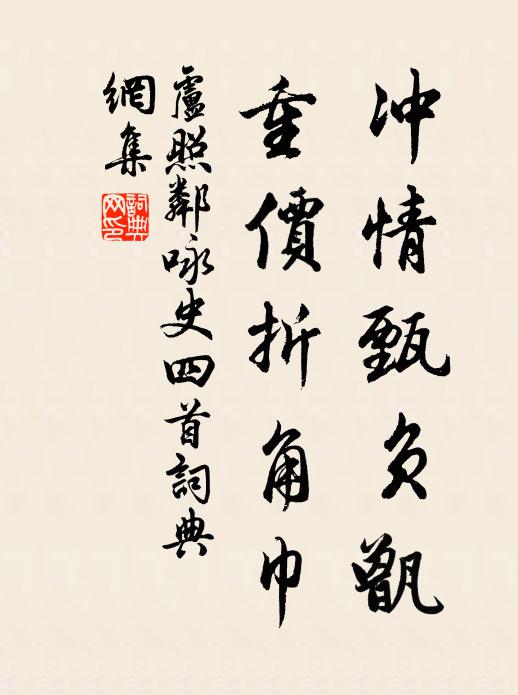 冲情甄负甑
重價折角巾
盧照鄰咏史四首詞典
網集
詞典
网印